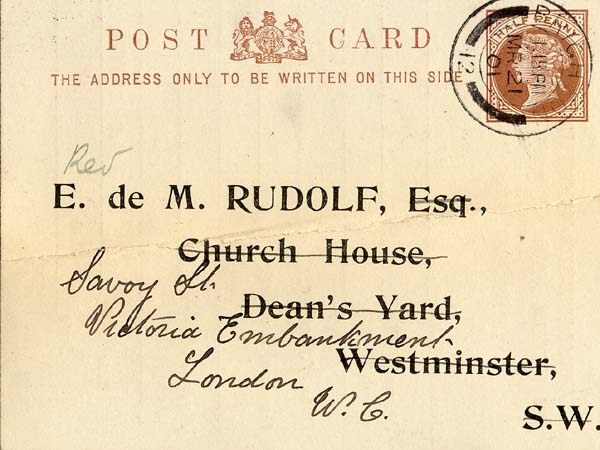 POST CARD
THE ADDRESS ONLY TO BE WRITTEN ON THIS SIDE
HALF PENNY
MR 21
01
12
Rev
E. de M. RUDOLF, Esq.,
Church House,
Savoy St.
Dean's Yard,
Victoria Embankment
Westminster,
London
W.C.
S.W.